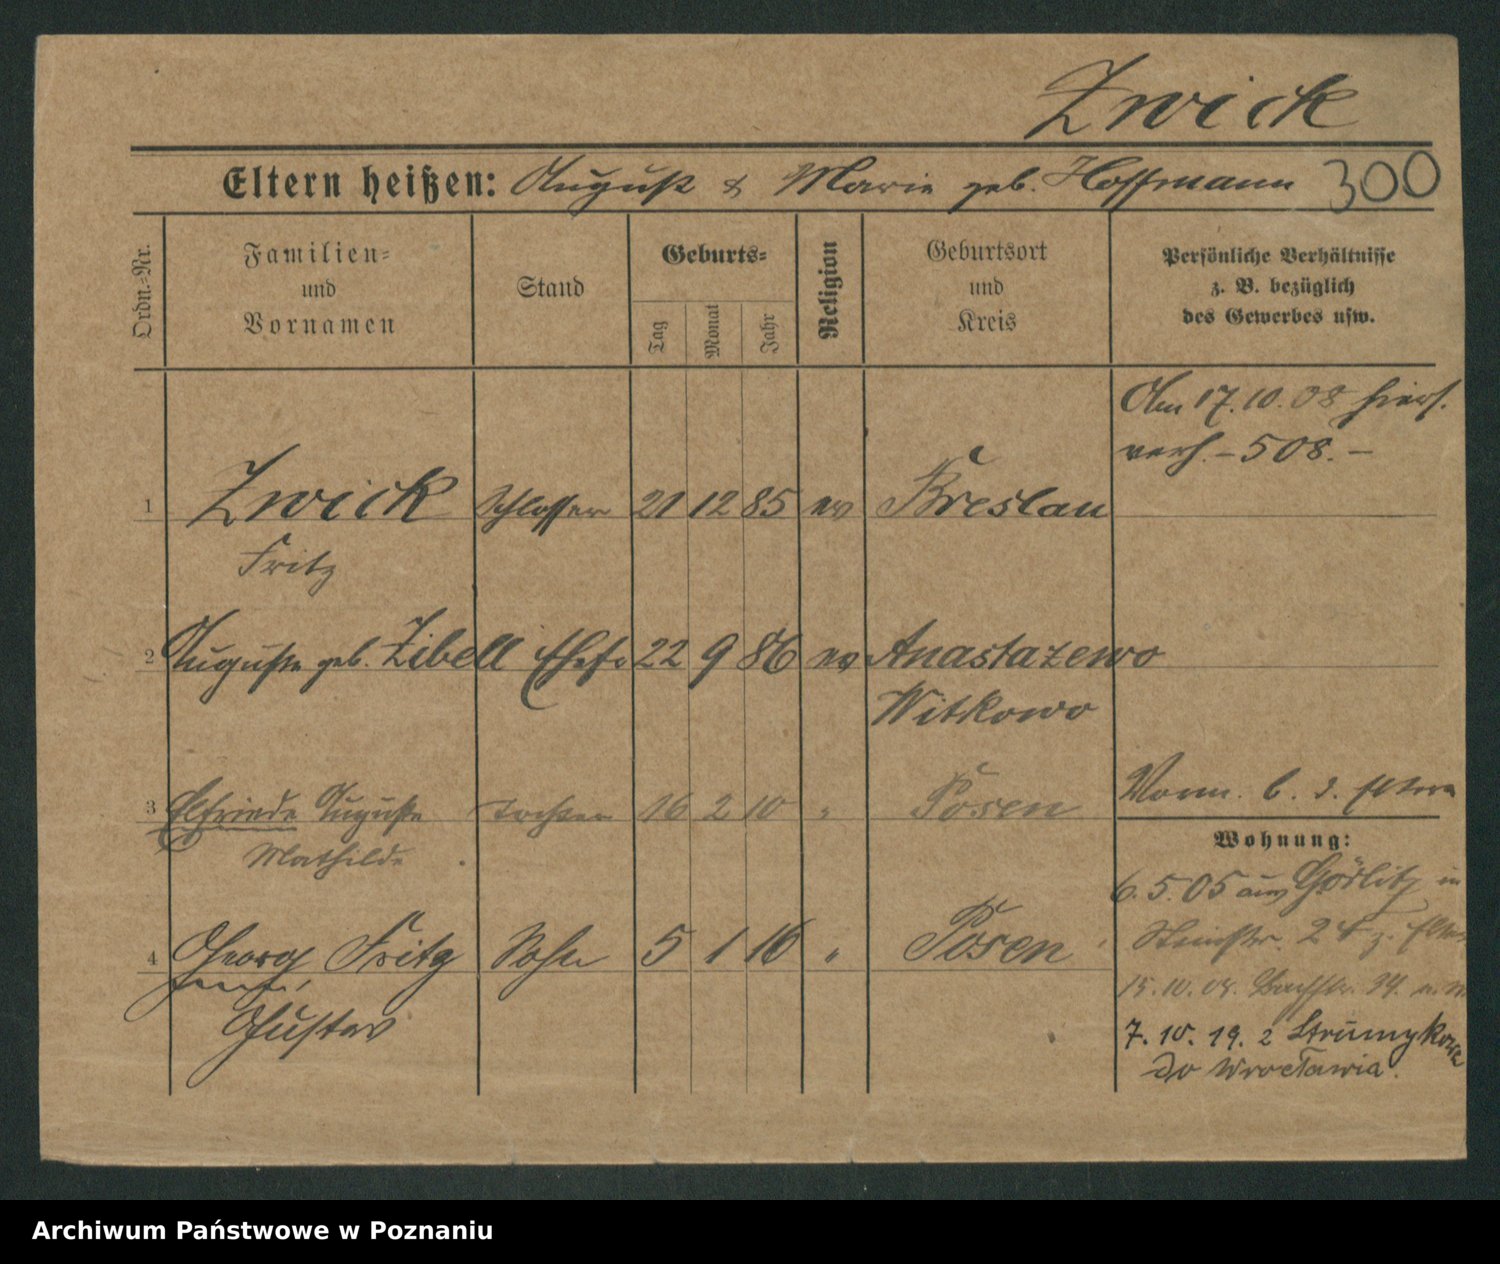 Zwick
Eltern heißen: August & Marie geb. Hoffmann 300
Ordn.-Nr.
Familien-
und
Vornamen
Stand
Geburts-
Tag
Monat
Jahr
Religion
Geburtsort
und
Kreis
Persönliche Verhältnisse
z. B. bezüglich
des Gewerbes usw.
Am 17.10.08 hiers.
verh. – 508. –
1 Zwick Schlosser 21 12 85 ev Breslau
Fritz
2 Auguste geb. Zibell Ehefr 22 9 86 ev Anastazewo
Witkowo
3 Elfriede Auguste Tochter 16 2 10 " Posen
Mathilde
Vorm. b. d.
Wohnung:
6.5.05 aus Görlitz in
24 z.
4 Georg Fritz Sohn 5 1 16 " Posen
Gustav
15.10.08. Bachstr.
7.10.19. z Strumykowa
do Wrocławia.
Archiwum Państwowe w Poznaniu